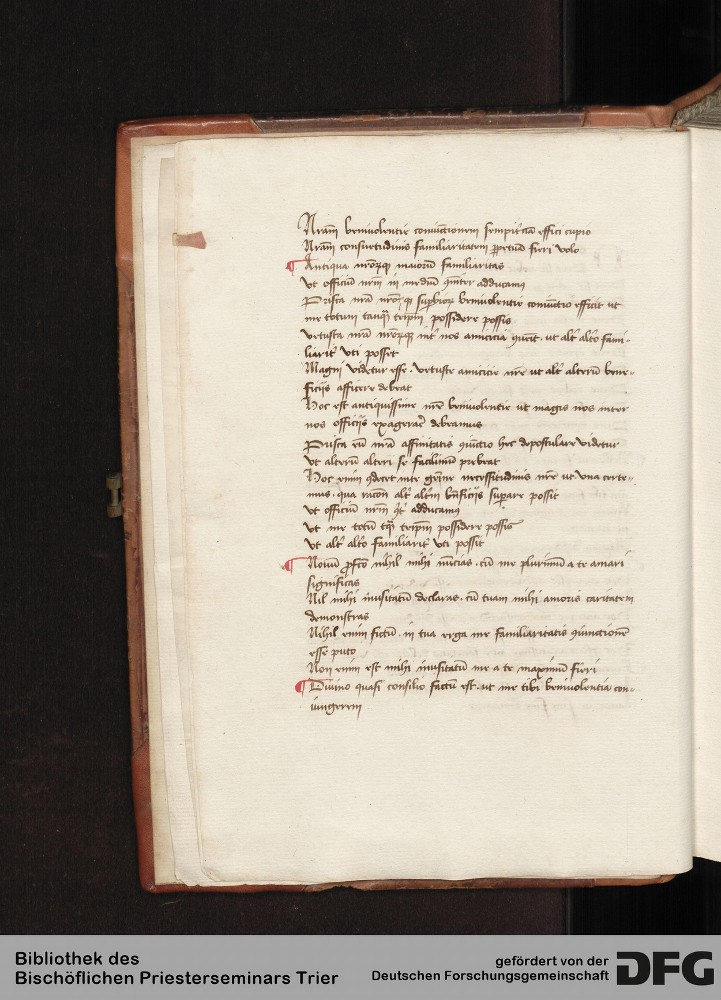 Nram beniuolentie coniunctionem sempiternā effici cupio
Nram consuetudinis familiaritatem ꝑpetuā fieri volo
Antiqua nrorūq maiorū familiaritas
Vt officiū nrm in mediū adducamꝰ
Prisca nrā beniuolentie coniunctio efficit ut
me totum tanq̄ teipm̄ possidere possis
Vetusta nrā nrorūq int̄ nos amicicia ut alt̄ alt̄o fami-
liarit̄ vti posset
Magni videtur esse vetuste amicicie nre ut alt̄ alterū bene-
ficijs afficere debeat
Hoc est antiquissime nre beniuolentie ut magis nos inter
nos officijs exagerare debeamus
Prisca nrā affinitatis hec depostulare videtur
Vt alterū alteri se facilimū prebeat
Hoc enim necessitudinis nre ut vna certe-
mus qua alt̄ bn̄ficijs suꝑare possit
Vt officiū nrm adducamꝰ
Vt me totū tq̄ teipm̄ possidere possis
Vt alt̄ alt̄o familiarit̄ vti possit
Nouū ꝓfecto nihil mihi nūcias cū me plurimū a te amari
significas
Nil mihi inusitatū declaras cū tuam mihi amoris caritatem
demonstras
Nihil enim fictū in tua erga me familiaritatis ꝯiunctionē
esse puto
Non enim est mihi inusitatū me a te maximū fieri
Diuino quasi consilio factū est ut me tibi beniuolentia con-
iungerem
Bibliothek des
Bischöflichen Priesterseminars Trier
gefördert von der
Deutschen Forschungsgemeinschaft
DFG